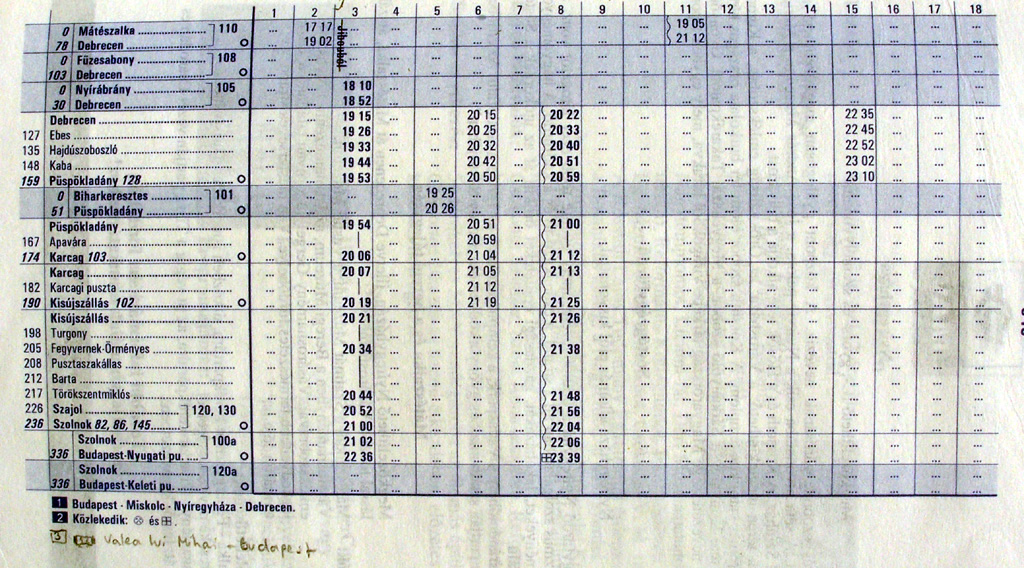 1 2 3 4 5 6 7 8 9 10 11 12 13 14 15 16 17 18
0 Mátészalka ... 110 ... 17 17 ... ... ... ... ... ... ... ... 19 05 ... ... ... ... ... ... ...
78 Debrecen ... ... 19 02 ... ... ... ... ... ... ... ... 21 12 ... ... ... ... ... ... ...
0 Füzesabony ... 108 ... ... ... ... ... ... ... ... ... ... ... ... ... ... ... ... ... ...
103 Debrecen ... ... ... ... ... ... ... ... ... ... ... ... ... ... ... ... ... ... ...
0 Nyírábrány ... 105 ... ... 18 10 ... ... ... ... ... ... ... ... ... ... ... ... ... ... ...
30 Debrecen ... ... ... 18 52 ... ... ... ... ... ... ... ... ... ... ... ... ... ... ...
Debrecen ... ... ... 19 15 ... ... 20 15 ... 20 22 ... ... ... ... ... ... 22 35 ... ... ...
127 Ebes ... ... ... 19 26 ... ... 20 25 ... 20 33 ... ... ... ... ... ... 22 45 ... ... ...
135 Hajdúszoboszló ... ... ... 19 33 ... ... 20 32 ... 20 40 ... ... ... ... ... ... 22 52 ... ... ...
148 Kaba ... ... ... 19 44 ... ... 20 42 ... 20 51 ... ... ... ... ... ... 23 02 ... ... ...
159 Püspökladány 128 ... ... ... 19 53 ... ... 20 50 ... 20 59 ... ... ... ... ... ... 23 10 ... ... ...
0 Biharkeresztes ... 101 ... ... ... ... 19 25 ... ... ... ... ... ... ... ... ... ... ... ... ...
51 Püspökladány ... ... ... ... ... 20 26 ... ... ... ... ... ... ... ... ... ... ... ... ...
Püspökladány ... ... ... 19 54 ... ... 20 51 ... 21 00 ... ... ... ... ... ... ... ... ... ...
167 Apavára ... ... ... | ... ... 20 59 ... | ... ... ... ... ... ... ... ... ... ...
174 Karcag 103 ... ... ... 20 06 ... ... 21 04 ... 21 12 ... ... ... ... ... ... ... ... ... ...
Karcag ... ... ... 20 07 ... ... 21 05 ... 21 13 ... ... ... ... ... ... ... ... ... ...
182 Karcagi puszta ... ... ... | ... ... 21 12 ... | ... ... ... ... ... ... ... ... ... ...
190 Kisújszállás 102 ... ... ... 20 19 ... ... 21 19 ... 21 25 ... ... ... ... ... ... ... ... ... ...
Kisújszállás ... ... ... 20 21 ... ... ... ... 21 26 ... ... ... ... ... ... ... ... ... ...
198 Turgony ... ... ... | ... ... ... ... | ... ... ... ... ... ... ... ... ... ...
205 Fegyvernek-Örményes ... ... ... 20 34 ... ... ... ... 21 38 ... ... ... ... ... ... ... ... ... ...
208 Pusztaszakállas ... ... ... | ... ... ... ... | ... ... ... ... ... ... ... ... ... ...
212 Barta ... ... ... | ... ... ... ... | ... ... ... ... ... ... ... ... ... ...
217 Törökszentmiklós ... ... ... 20 44 ... ... ... ... 21 48 ... ... ... ... ... ... ... ... ... ...
226 Szajol ... 120, 130 ... ... 20 52 ... ... ... ... 21 56 ... ... ... ... ... ... ... ... ... ...
236 Szolnok 82, 86, 145 ... ... ... 21 00 ... ... ... ... 22 04 ... ... ... ... ... ... ... ... ... ...
Szolnok ... 100a ... ... 21 02 ... ... ... ... 22 06 ... ... ... ... ... ... ... ... ... ...
336 Budapest-Nyugati pu. ... ... ... 22 36 ... ... ... ... ⊞23 39 ... ... ... ... ... ... ... ... ... ...
Szolnok ... 120a ... ... ... ... ... ... ... ... ... ... ... ... ... ... ... ... ... ...
336 Budapest-Keleti pu. ... ... ... ... ... ... ... ... ... ... ... ... ... ... ... ... ... ... ...
1 Budapest - Miskolc - Nyíregyháza - Debrecen.
2 Közlekedik: ⊗ és ⊞.
3 Valea lui Mihai - Budapest